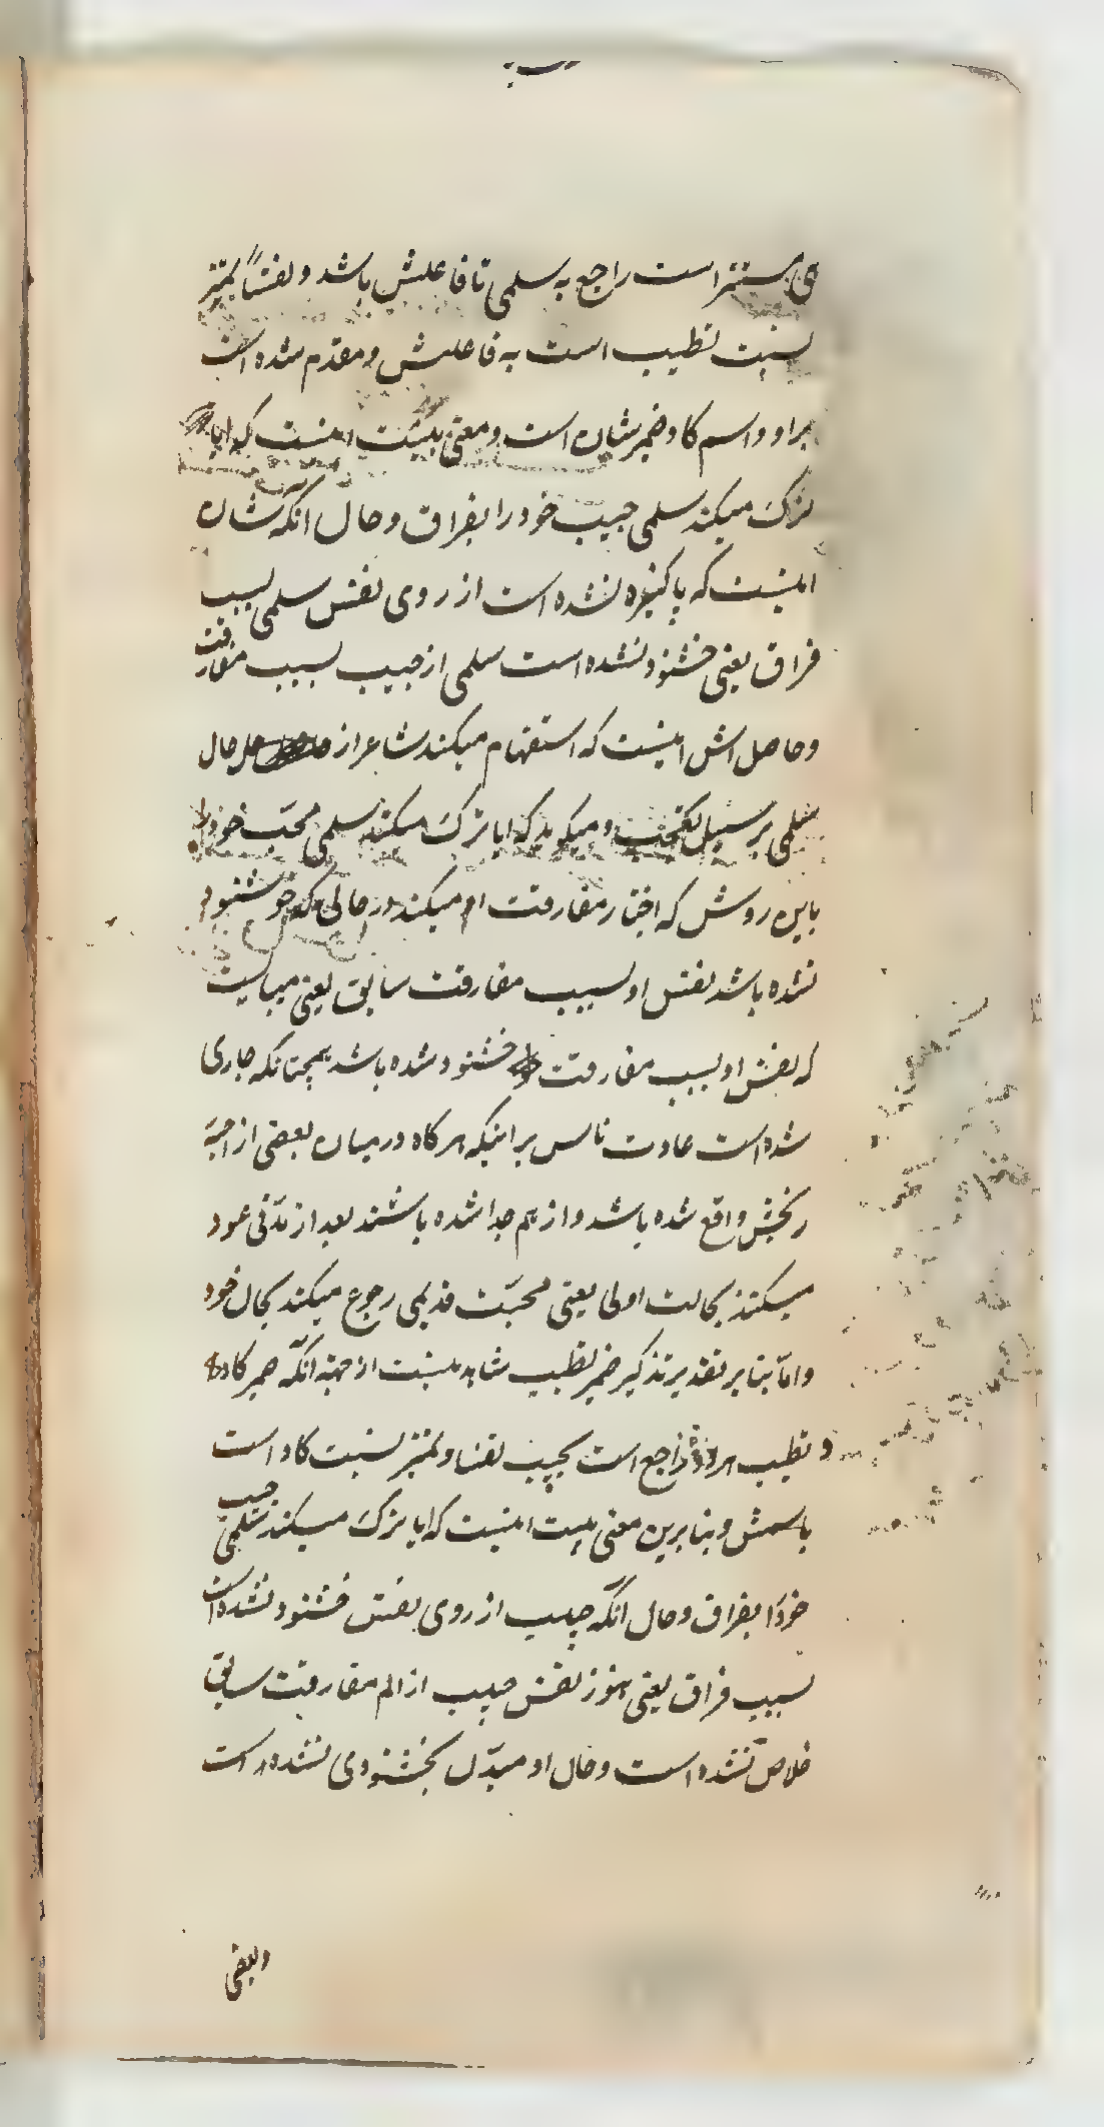 هی مستتر است راجع به سلمی تا فاعلش باشد و نفساً تمیز
نسبت تطیب است به فاعلش و مقدم شده است
براو و اسم کاد ضمیر شان است و معنی بیت اینست که ایا
ترک میکند سلمی حبیب خود را بفراق و حال آنکه شان
اینست که پاکیزه نشده است از روی نفس سلمی بسبب
فراق یعنی خشنود نشده است سلمی از حبیب بسبب مفارقت
و حاصل اش اینست که استفهام میکند شاعر از حال
سلمی بر سبیل تعجب و میگوید که ایا ترک میکند سلمی محبّ خود را
باین روش که اختیار مفارقت او میکند در حالی که خوشنود
نشده باشد نفس او بسبب مفارقت سابق یعنی میبایست
که نفس او بسبب مفارقت خشنود شده باشد همچنانکه جاری
شده است عادت ناس بر اینکه هر کاه در میان بعضی از احبّه
رنجش واقع شده باشد و از هم جدا شده باشند بعد از مدّتی عود
میکنند بحالت اولی یعنی محبّت قدیمی رجوع میکند بحال خود
و امّا بنا بر تقدیر تذکیر ضمیر تطیب شاهد نیست از جهة آنکه ضمیر کاد
و تطیب هر دو راجع است بحبیب نفسا و تمیز نسبت کاد است
باسمش و بنابرین معنی بیت اینست که ایا ترک میکند سلمی حبیب
خود را بفراق و حال آنکه حبیب از روی نفس خشنود نشده است
بسبب فراق یعنی هنوز نفس حبیب از الم مفارقت سابق
خلاص نشده است و حال او مبدّل بخشنودی نشده است
وبعضی